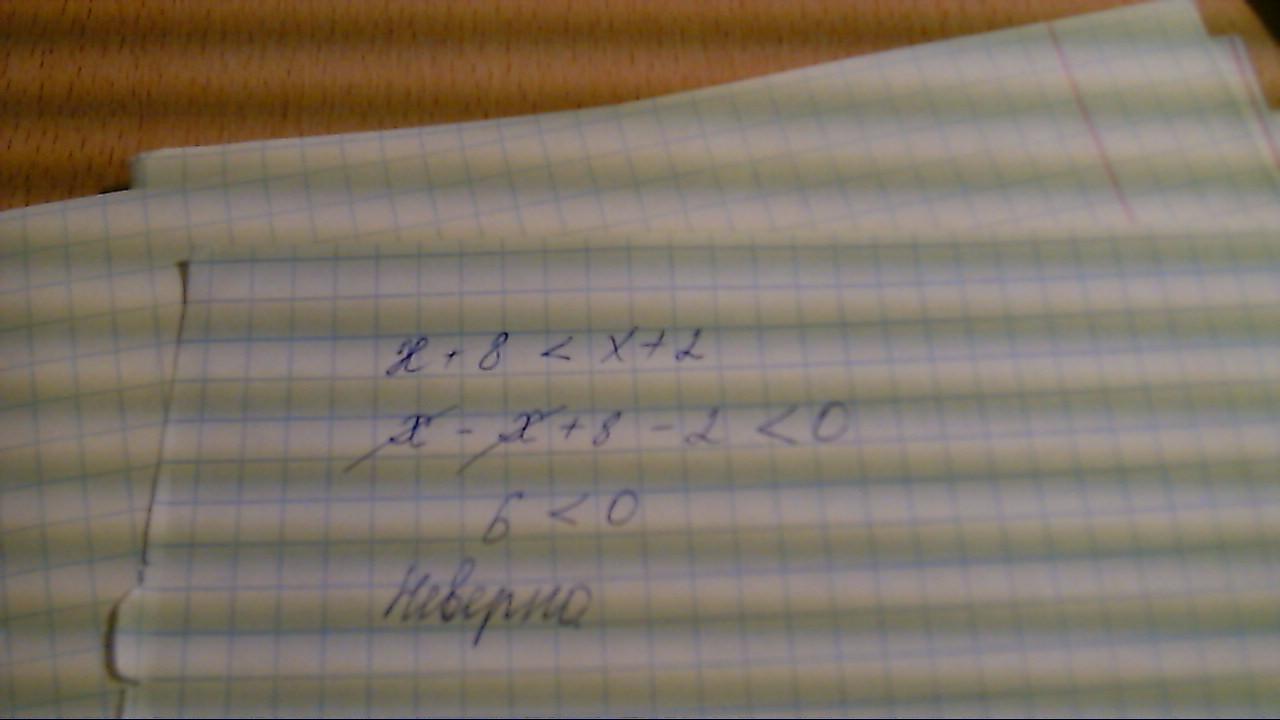 x + 8 < x + 2
x - x + 8 - 2 < 0
6 < 0
Неверно